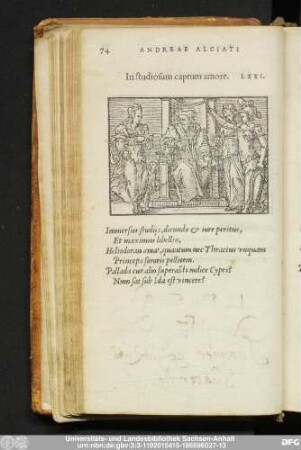 74 ANDREAE ALCIATI
In studiosum captum amore. LXXI.
Immersus studijs, dicundo & iure peritus,
Et maximus libellio,
Heliodoram amat, quantum nec Thracius unquam
Princeps sororis pellicem.
Pallada cur alio superasti iudice Cypri?
Num sat sub Ida est vincere?
Universitäts- und Landesbibliothek Sachsen-Anhalt
urn:nbn:de:gbv:3:3-1192015415-186696027-13
DFG